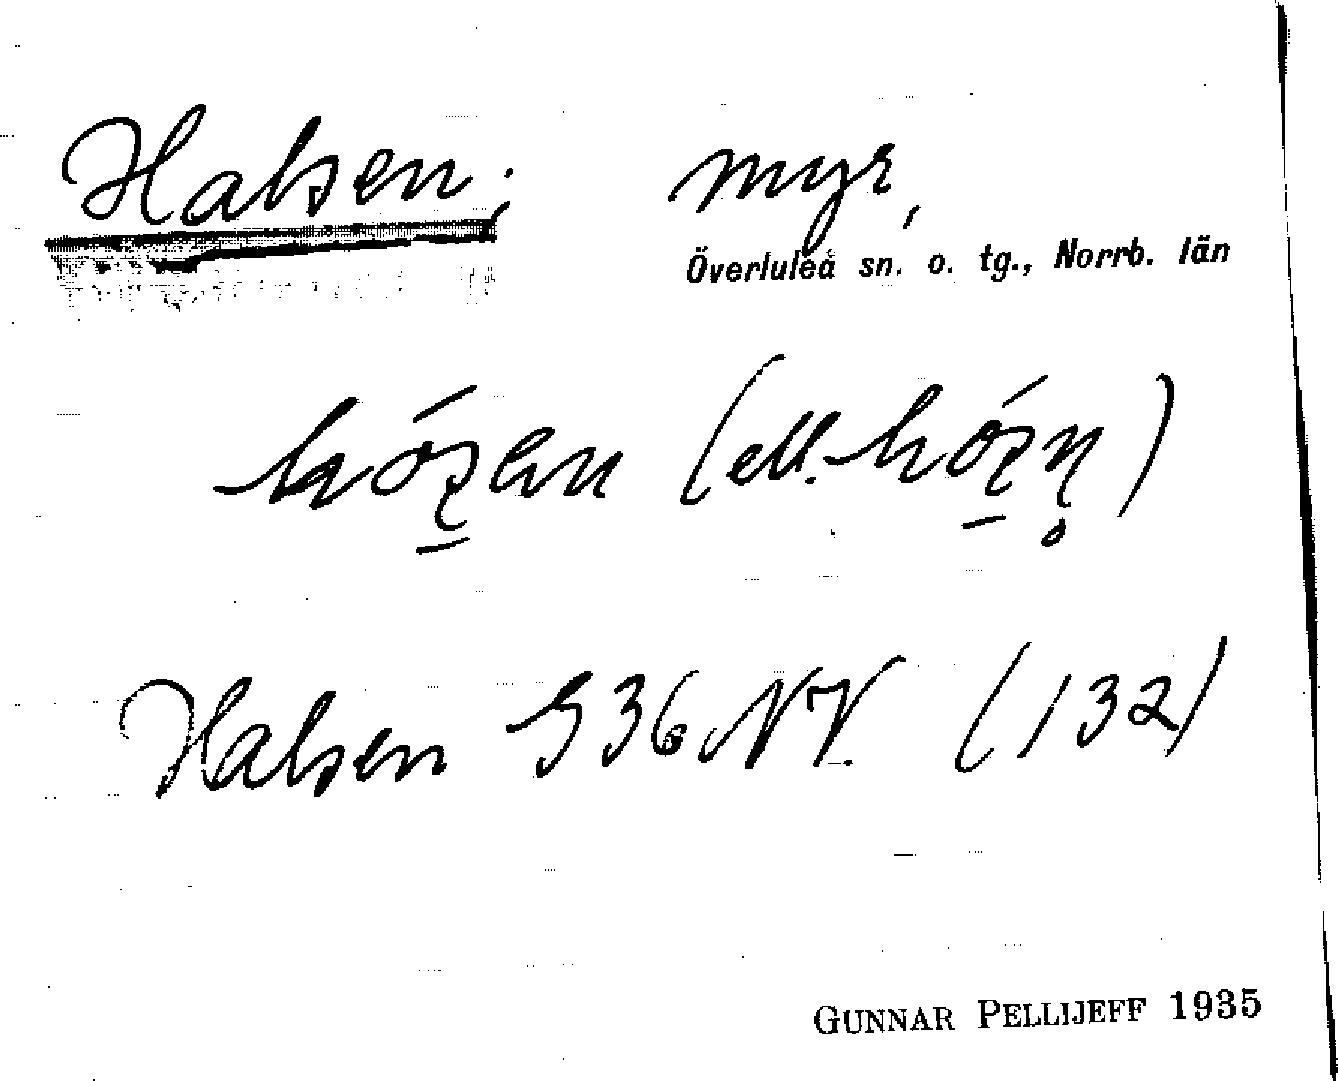 Halsen; myr,
Överluleå sn. o. tg., Norrb. län
(ell.
Halsen G 36 NV. (132)
GUNNAR PELLIJEFF 1935